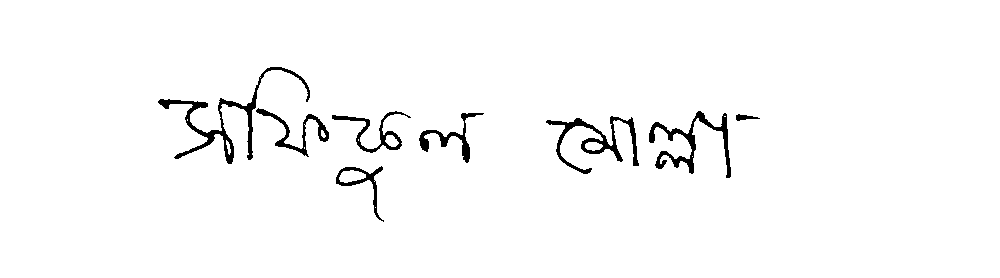 সফিচুল মোল্লা